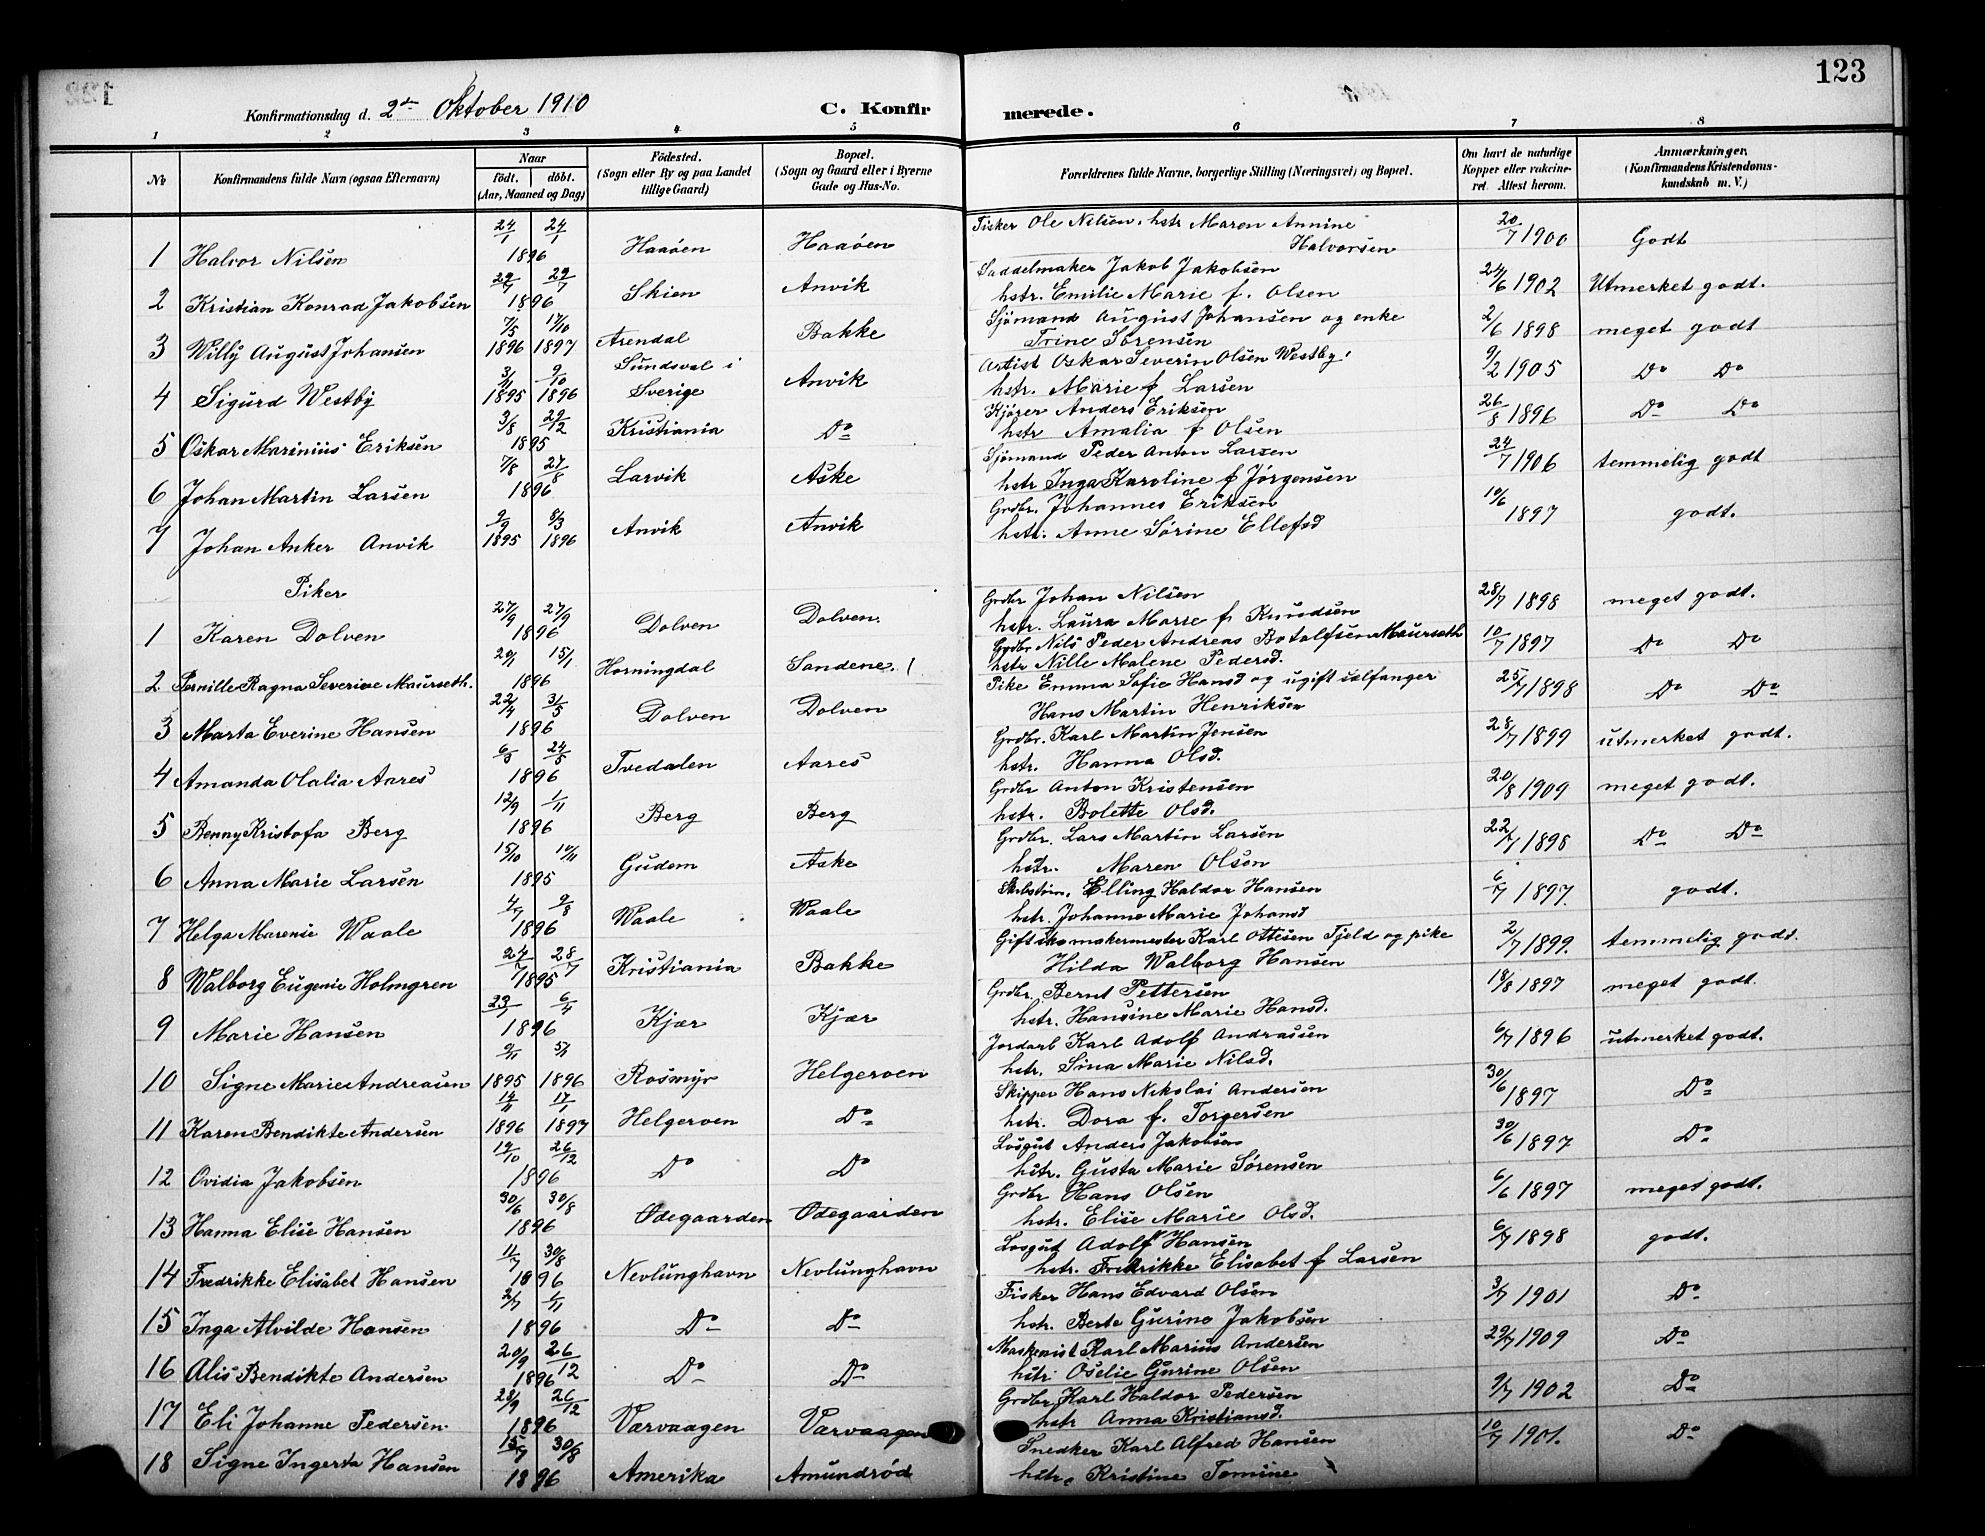 123
Konfirmationsdag d. 2den Oktober 1910
C. Konfirmerede.
1 2 3 4 5 6 7 8
No
Konfirmandens fulde Navn (ogsaa Efternavn)
Naar
födt. döbt.
(Aar, Maaned og Dag)
Födested.
(Sogn eller By og paa Landet
tillige Gaard)
Bopæl.
(Sogn og Gaard eller i Byerne
Gade og Hus-No.
Forældrenes fulde Navne, borgerlige Stilling (Næringsvei) og Bopæl.
Om havt de naturlige
Kopper eller vakcine-
ret. Attest herom.
Anmærkninger.
(Konfirmandens Kristendoms-
kundskab m. V.)
1 Halvor Nilsen 24/1 24/1 1896 Haaöen Haaöen Fisker Ole Nilsen, hstr Maren Annine Halvorsen 20/7 1900 Godt
2 Kristian Konrad Jakobsen 29/7 29/7 1896 Skien Anvik Saddelmaker Jakob Jakobsen hstr. Emilie Marie f. Olsen 24/6 1902 Utmerket godt.
3 Willy August Johansen 7/5 1896 17/10 1897 Arendal Bakke Sjömand August Johansen og enke Trine Sörensen 2/6 1898 meget godt
4 Sigurd Westby 3/11 1895 9/10 1896 Sundsval i Sverige Anvik Artist Oskar Severin Olsen Westby, hstr. Marie f Larsen 9/2 1905 Do Do
5 Oskar Marinius Eriksen 3/8 29/12 1895 Kristiania Do Kjörer Anders Eriksen hstr Amalia f Olsen 26/8 1896 Do Do
6 Johan Martin Larsen 7/8 27/8 1896 Larvik Aske Sjömand Peder Anton Larsen hstr Inga Karoline f Jörgensen 24/7 1906 temmelig godt
7 Johan Anker Anvik 9/9 1895 8/3 1896 Anvik Anvik Grdbr. Johannes Eriksen hstr. Anne Sörine Ellefsd 10/6 1897 godt.
Piker
1 Karen Dolven 27/9 27/9 1896 Dolven Dolven. Grdbr Johan Nilsen hstr. Laura Marie f. Knudsen 28/7 1898 meget godt.
2 Pernille Ragna Severine Maurseth. 20/1 15/1 1896 Horningdal Sandene. Grdbr Nils Peder Andreas Botolfsen Maurseth hstr Nille Malene Pedersd. 10/7 1897 Do Do
3 Marta Everine Hansen 22/4 31/5 1896 Dolven Dolven Pike Emma Sofie Hansd og ugift ialfanger Hans Martin Henriksen 25/7 1898 Do Do
4 Amanda Olalia Aares 6/5 24/5 1896 Tvedalen Aares Grdbr. Karl Martin Jensen hstr. Hanna Olsd. 28/7 1899 utmerket godt.
5 Benny Kristofa Berg 12/9 1/11 1896 Berg Berg Grdbr Anton Kristensen hstr. Bolette Olsd. 20/8 1909 meget godt.
6 Anna Marie Larsen 15/10 10/11 1895 Gudem Aske Grdbr. Lars Martin Larsen hstr. Maren Olsen 22/7 1898 Do Do
7 Helga Marensie Waale 4/7 9/8 1896 Waale Waale Elling Haldor Hansen hstr. Johanne Marie Johansd 6/7 1897. godt.
8 Walborg Eugenie Holmgren 24/7 28/7 1895 Kristiania Bakke Gift skomakermester Karl Ottesen Tjeld og pike Hilda Walborg Hansen 2/7 1899. temmelig godt.
9 Marie Hansen 23/1 6/4 1896 Kjær Kjær Grdbr. Bernt Pettersen hstr. Hansine Marie Hansd. 18/8 1897 meget godt.
10 Signe Marie Andreasen 9/11 1895 5/1 1896 Rosmyr Helgeroen Jordarb Karl Adolf Andraasen hstr. Sina Marie Nilsd. 6/7 1896 utmerket godt.
11 Karen Bendikte Andersen 14/11 1896 17/1 1897 Helgeroen Do Skipper Hans Nikolai Andersen hstr. Dora f. Torgersen 30/6 1897 Do
12 Ovidia Jakobsen 14/10 26/12 1896 Do Do Losgut Anders Jakobsen hstr. Gusta Marie Sörensen 30/6 1897 Do
13 Hanna Elise Hansen 30/6 30/8 1896 Ödegaarden Ödegaarden Grdbr Hans Olsen hstr. Elise Marie Olsd. 6/6 1897 meget godt.
14 Fredrikke Elisabet Hansen 11/7 30/8 1896 Nevlunghavn Nevlunghavn Losgut Adolf Hansen hstr. Fredrikke Elisabet f Larsen 6/7 1898 godt.
15 Inga Alvilde Hansen 2/7 1/11 1896 Do Do Fisker Hans Edvard Olsen hstr. Berte Gurine Jakobsen 3/7 1901 Do
16 Alis Bendikte Andersen 20/9 26/12 1896 Do Do Maskenist Karl Marius Andersen hstr. Oselie Gurine Olsen 29/7 1909 Do
17 Eli Johanne Pedersen. 28/9 26/12 1896 Varvaagen Varvaagen Grdbr Karl Haldor Pedersen hstr Anna Kristiansd. 9/7 1902 Do
18 Signe Ingerta Hansen 15/7 30/8 1896 Amerika Amundröd Snedker Karl Alfred Hansen hstr. Kristine Tomine 10/7 1901. Do